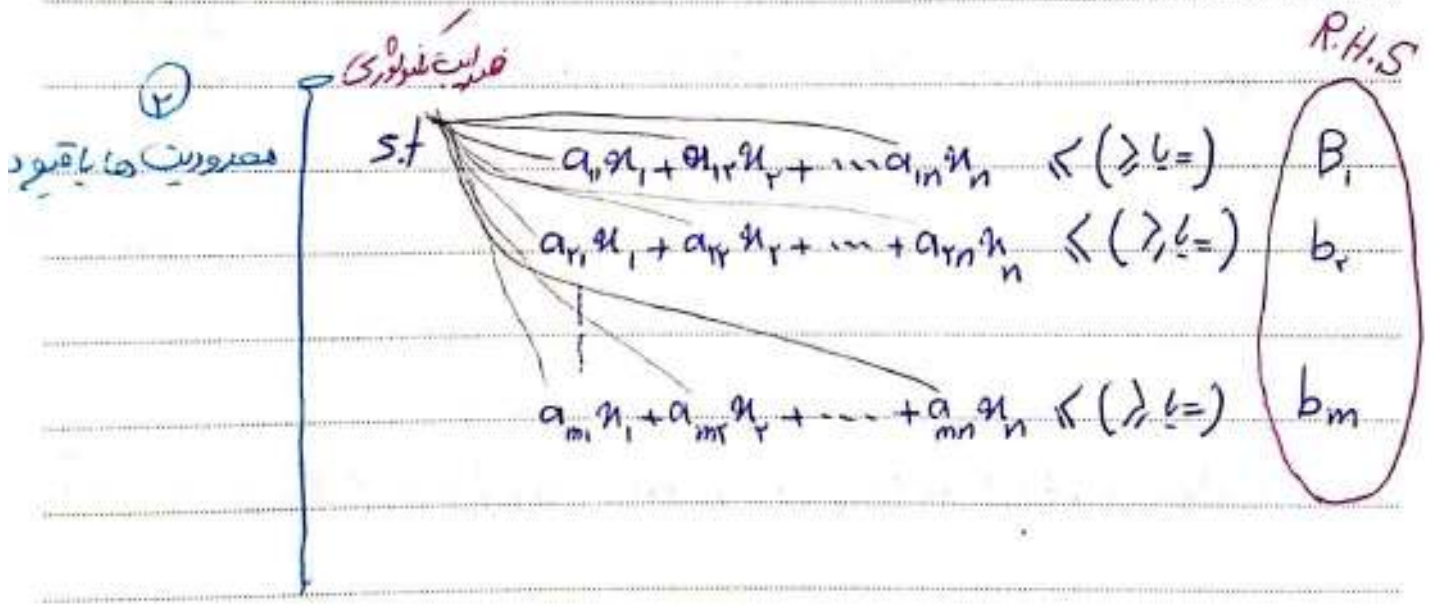 R.H.S
ضرایب تکنولوژی
۲
محدودیت ها یا قیود
s.t a₁₁x₁ + a₁۲x۲ + ... a₁ₙxₙ ≤ (≥ یا =) B₁
a۲₁x₁ + a۲۲x۲ + ... + a۲ₙxₙ ≤ (≥ یا =) b۲
aₘ₁x₁ + aₘ۲x۲ + .... + aₘₙxₙ ≤ (≥ یا =) bₘ